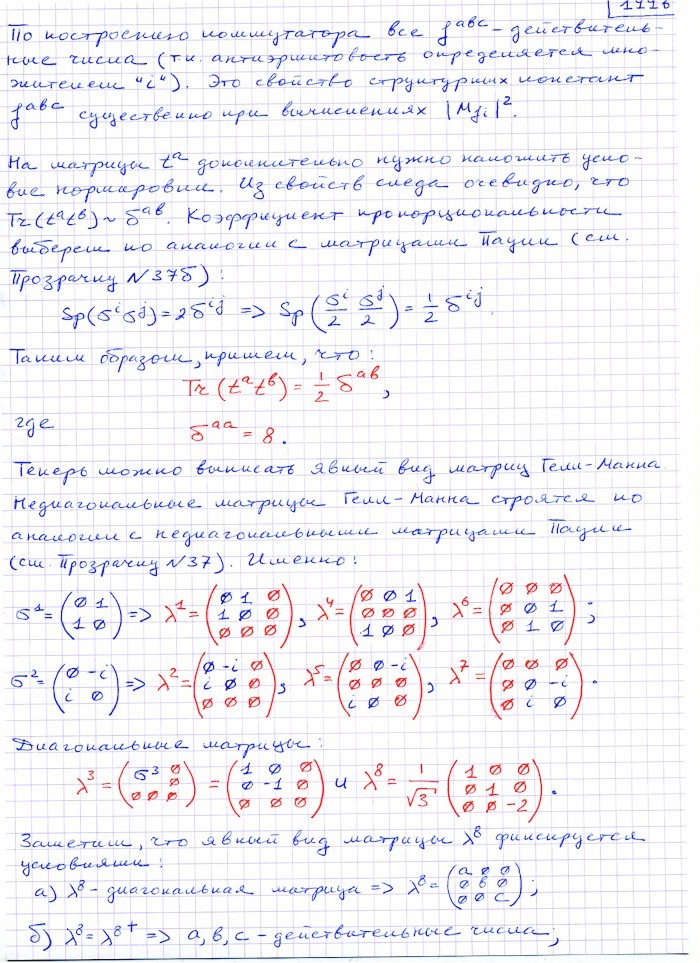 117б
По построению коммутатора все f^{abc} – действитель-
ные числа (т.к. антиэрмитовость определяется мно-
жителем "i"). Это свойство структурных констант
f^{abc} существенно при вычислениях |M_{fi}|².
На матрицы t^a дополнительно нужно наложить усло-
вие нормировки. Из свойств следа очевидно, что
Tr(t^a t^b) ~ δ^{ab}. Коэффициент пропорциональности
выберем по аналогии с матрицами Паули (см.
Прозрачку №37б):
Sp(σ^i σ^j) = 2δ^{ij} => Sp(σ^i/2 σ^j/2) = 1/2 δ^{ij}.
Таким образом, примем, что:
Tr(t^a t^b) = 1/2 δ^{ab},
где
δ^{aa} = 8.
Теперь можно выписать явный вид матриц Гелл-Манна.
Недиагональные матрицы Гелл-Манна строятся по
аналогии с недиагональными матрицами Паули
(см. Прозрачку №37). Именно:
σ¹ = (0 1; 1 0) => λ¹ = (0 1 0; 1 0 0; 0 0 0), λ⁴ = (0 0 1; 0 0 0; 1 0 0), λ⁶ = (0 0 0; 0 0 1; 0 1 0);
σ² = (0 -i; i 0) => λ² = (0 -i 0; i 0 0; 0 0 0), λ⁵ = (0 0 -i; 0 0 0; i 0 0), λ⁷ = (0 0 0; 0 0 -i; 0 i 0).
Диагональные матрицы:
λ³ = (σ³ 0; 0; 0 0 0) = (1 0 0; 0 -1 0; 0 0 0) и λ⁸ = 1/√3 (1 0 0; 0 1 0; 0 0 -2).
Заметим, что явный вид матрицы λ⁸ фиксируется
условиями:
а) λ⁸ – диагональная матрица => λ⁸ = (a 0 0; 0 b 0; 0 0 c);
б) λ⁸ = λ⁸⁺ => a, b, c – действительные числа;